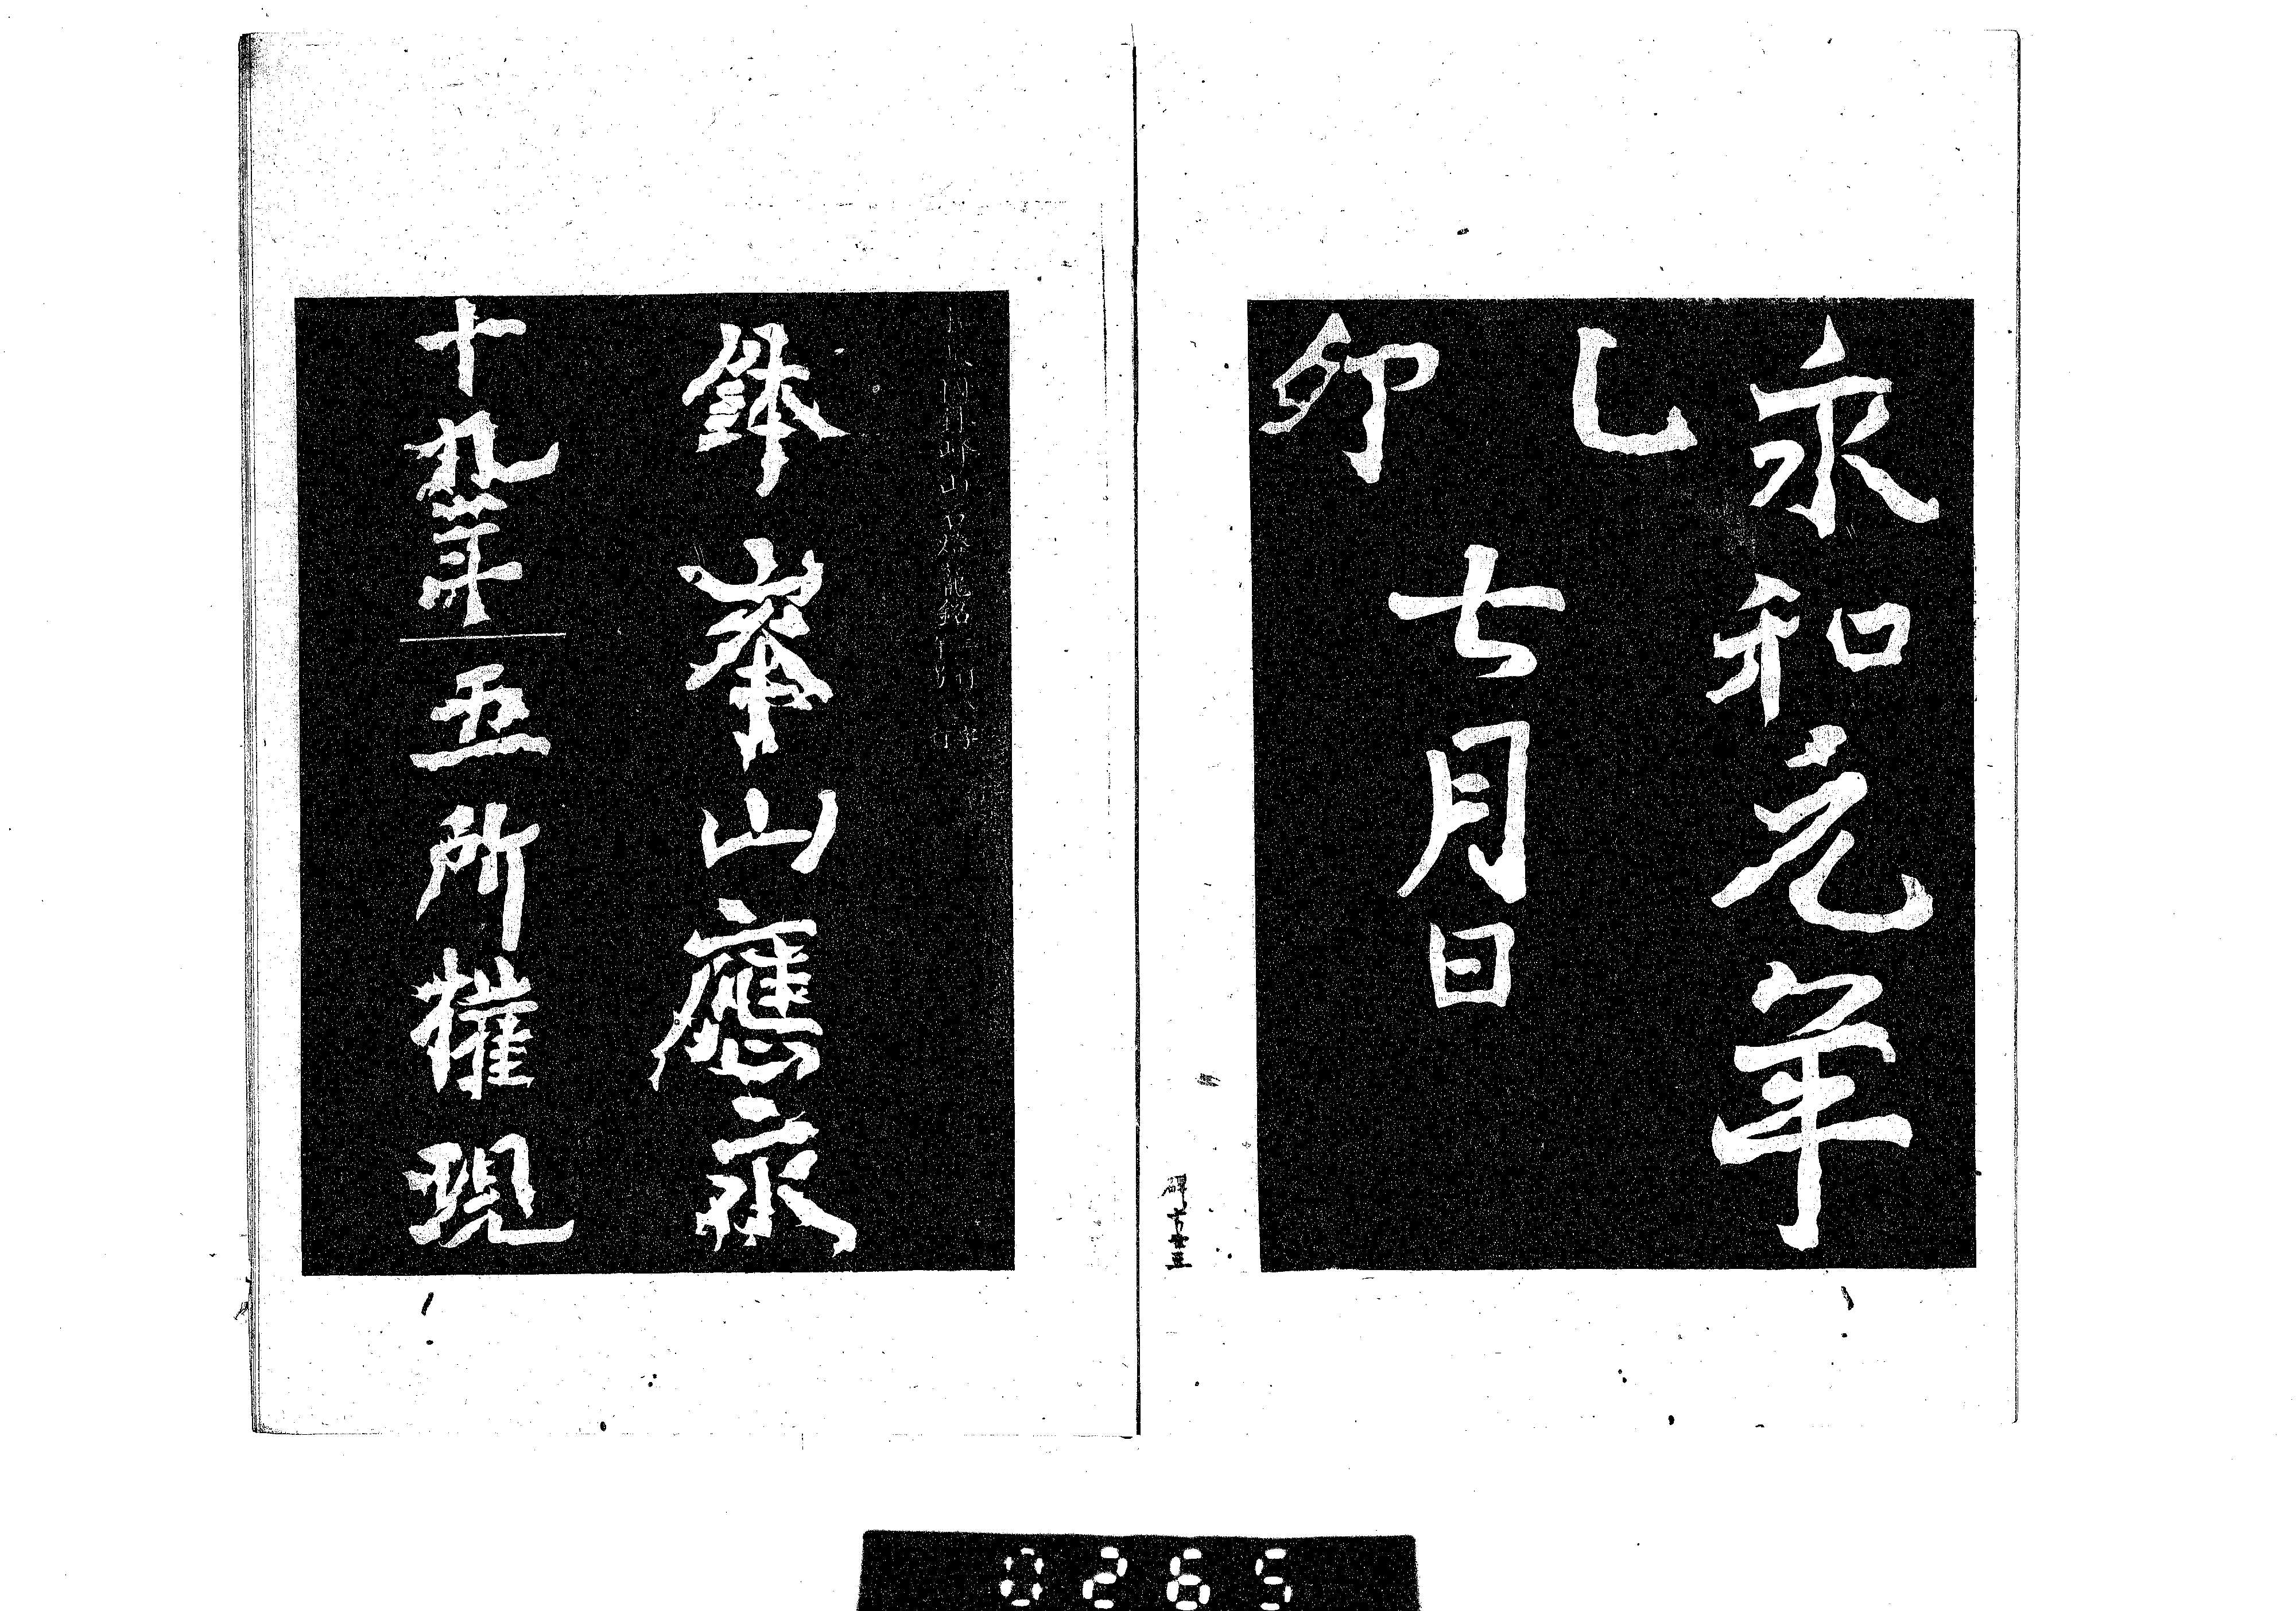 永和元年
乙
卯
七月日
鉢峯山應永
十九年
五所權現
0265